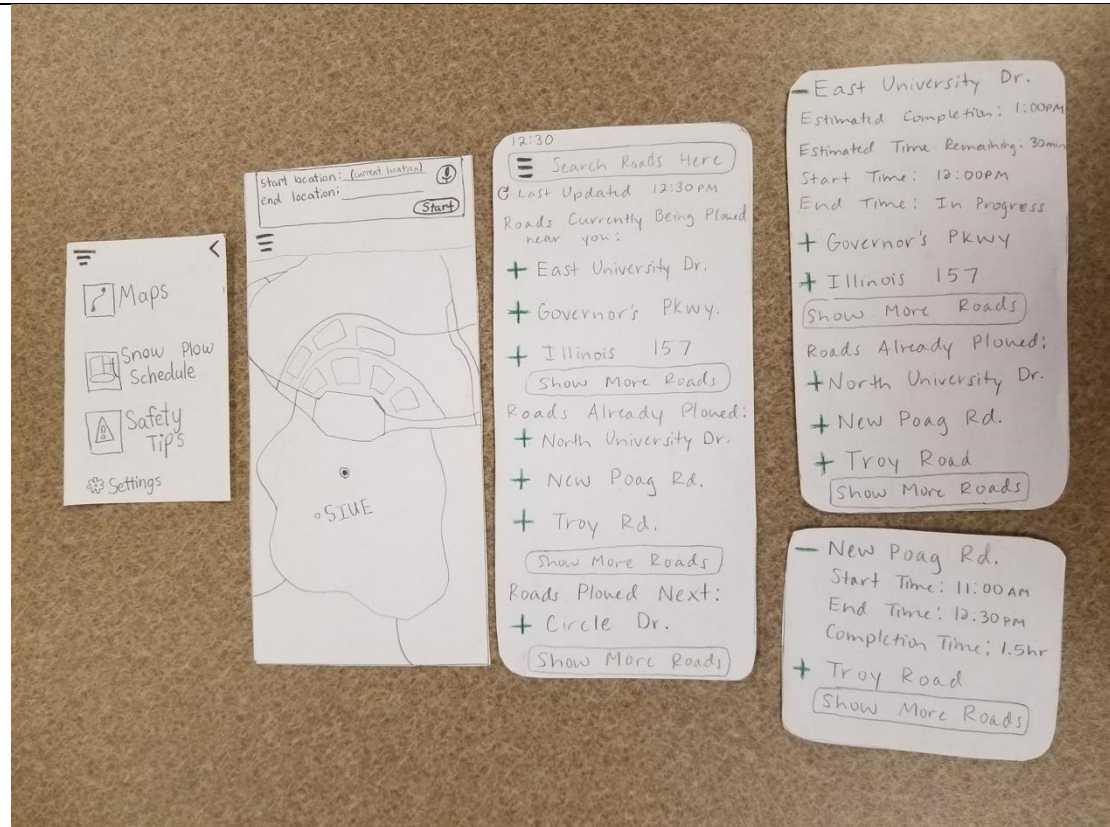 Maps
Snow Plow
Schedule
Safety
Tips
Settings
Start location: (current location)
end location:
Start
SIUE
12:30
Search Roads Here
Last Updated 12:30PM
Roads Currently Being Plowed
near you:
+ East University Dr.
+ Governor's PKwy.
+ Illinois 157
Show More Roads
Roads Already Plowed:
+ North University Dr.
+ New Poag Rd.
+ Troy Rd.
Show More Roads
Roads Plowed Next:
+ Circle Dr.
Show More Roads
- East University Dr.
Estimated Completion: 1:00PM
Estimated Time Remaining: 30min
Start Time: 12:00PM
End Time: In Progress
+ Governor's PKwy
+ Illinois 157
Show More Roads
Roads Already Plowed:
+ North University Dr.
+ New Poag Rd.
+ Troy Road
Show More Roads
- New Poag Rd.
Start Time: 11:00 AM
End Time: 12:30 PM
Completion Time: 1.5hr
+ Troy Road
Show More Roads